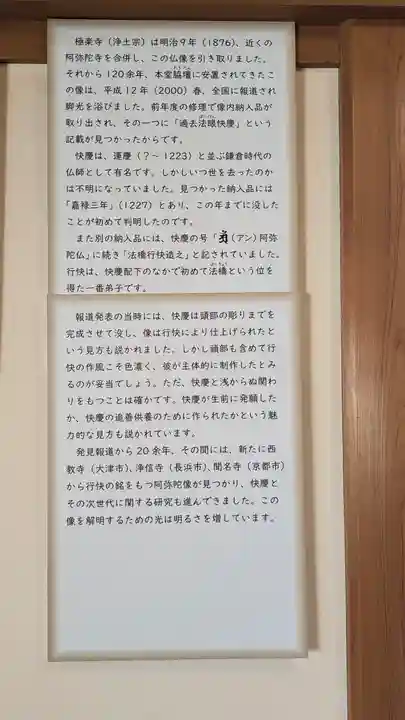 極楽寺（浄土宗）は明治9年（1876）、近くの
阿弥陀寺を合併し、この仏像を引き取りました。
それから120余年、本堂脇壇に安置されてきたこ
の像は、平成12年（2000）春、全国に報道され
脚光を浴びました。前年度の修理で像内納入品が
取り出され、その一つに「過去法眼快慶」という
記載が見つかったからです。
快慶は、運慶（？～1223）と並ぶ鎌倉時代の
仏師として有名です。しかしいつ世を去ったのか
は不明になっていました。見つかった納入品には
「嘉禄三年」（1227）とあり、この年までに没した
ことが初めて判明したのです。
また別の納入品には、快慶の号「（アン）阿弥
陀仏」に続き「法橋行快造之」と記されていました。
行快は、快慶配下のなかで初めて法橋という位を
得た一番弟子です。
報道発表の当時には、快慶は頭部の彫りまでを
完成させて没し、像は行快により仕上げられたと
いう見方も説かれました。しかし頭部も含めて行
快の作風こそ色濃く、彼が主体的に制作したとみ
るのが妥当でしょう。ただ、快慶と浅からぬ関わ
りをもつことは確かです。快慶が生前に発願した
か、快慶の追善供養のために作られたかという魅
力的な見方も説かれています。
発見報道から20余年、その間には、新たに西
教寺（大津市）、浄信寺（長浜市）、聞名寺（京都市）
から行快の銘をもつ阿弥陀像が見つかり、快慶と
その次世代に関する研究も進んできました。この
像を解明するための光は明るさを増しています。